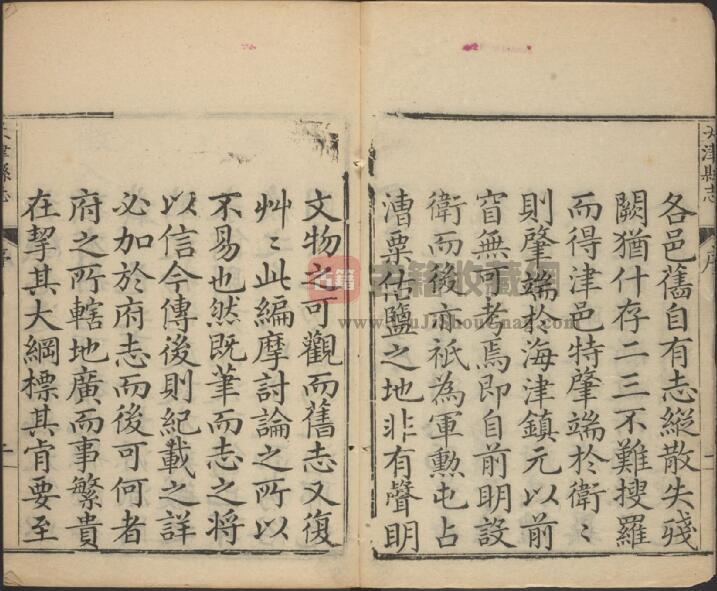 天津縣志
序
各邑舊自有志縱散失殘
闕猶什存二三不難搜羅
而得津邑特肇端於衛〻
則肇端於海津鎮元以前
窅無可考焉即自前明設
衛而後亦祇為軍勲屯占
漕粟估鹽之地非有聲明
文物之可觀而舊志又復
艸〻此編摩討論之所以
不易也然既筆而志之將
以信今傳後則紀載之詳
必加於府志而後可何者
府之所轄地廣而事繁貴
在挈其大綱標其肯要至
津縣志
序
古籍
古籍收藏網